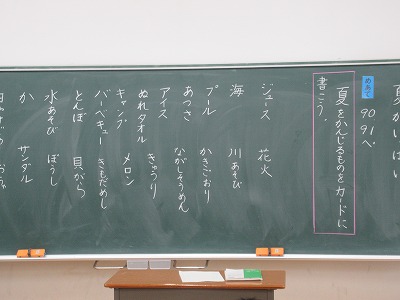 夏がいっぱい
めあて
90 91ページ
夏をかんじるものをカードに
書こう。
ジュース 花火
海 川あそび
プール かきごおり
あつさ ながしそうめん
アイス きゅうり
ぬれタオル メロン
キャンプ きもだめし
バーベキュー 貝がら
とんぼ ぼうし
水あそび サンダル
か